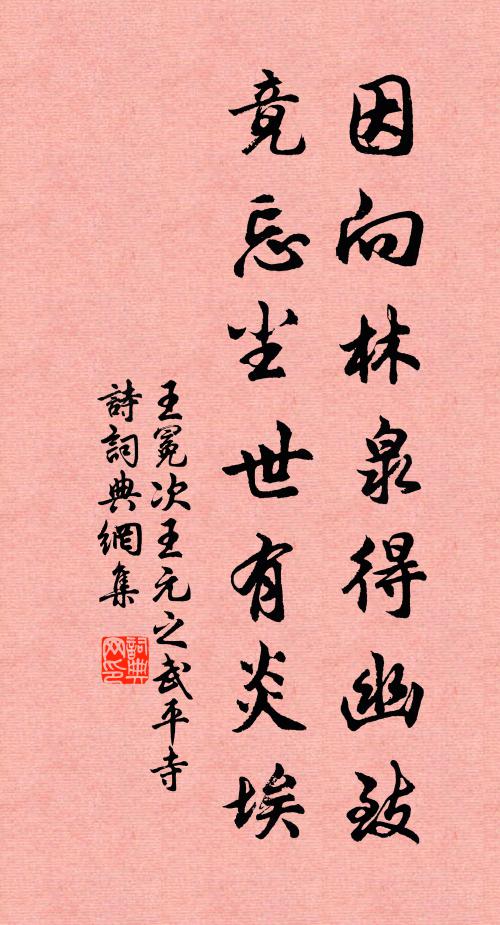 因向林泉得幽致
竟忘尘世有炎埃
王冕次王元之武平寺
詩詞典網集
詞典网印